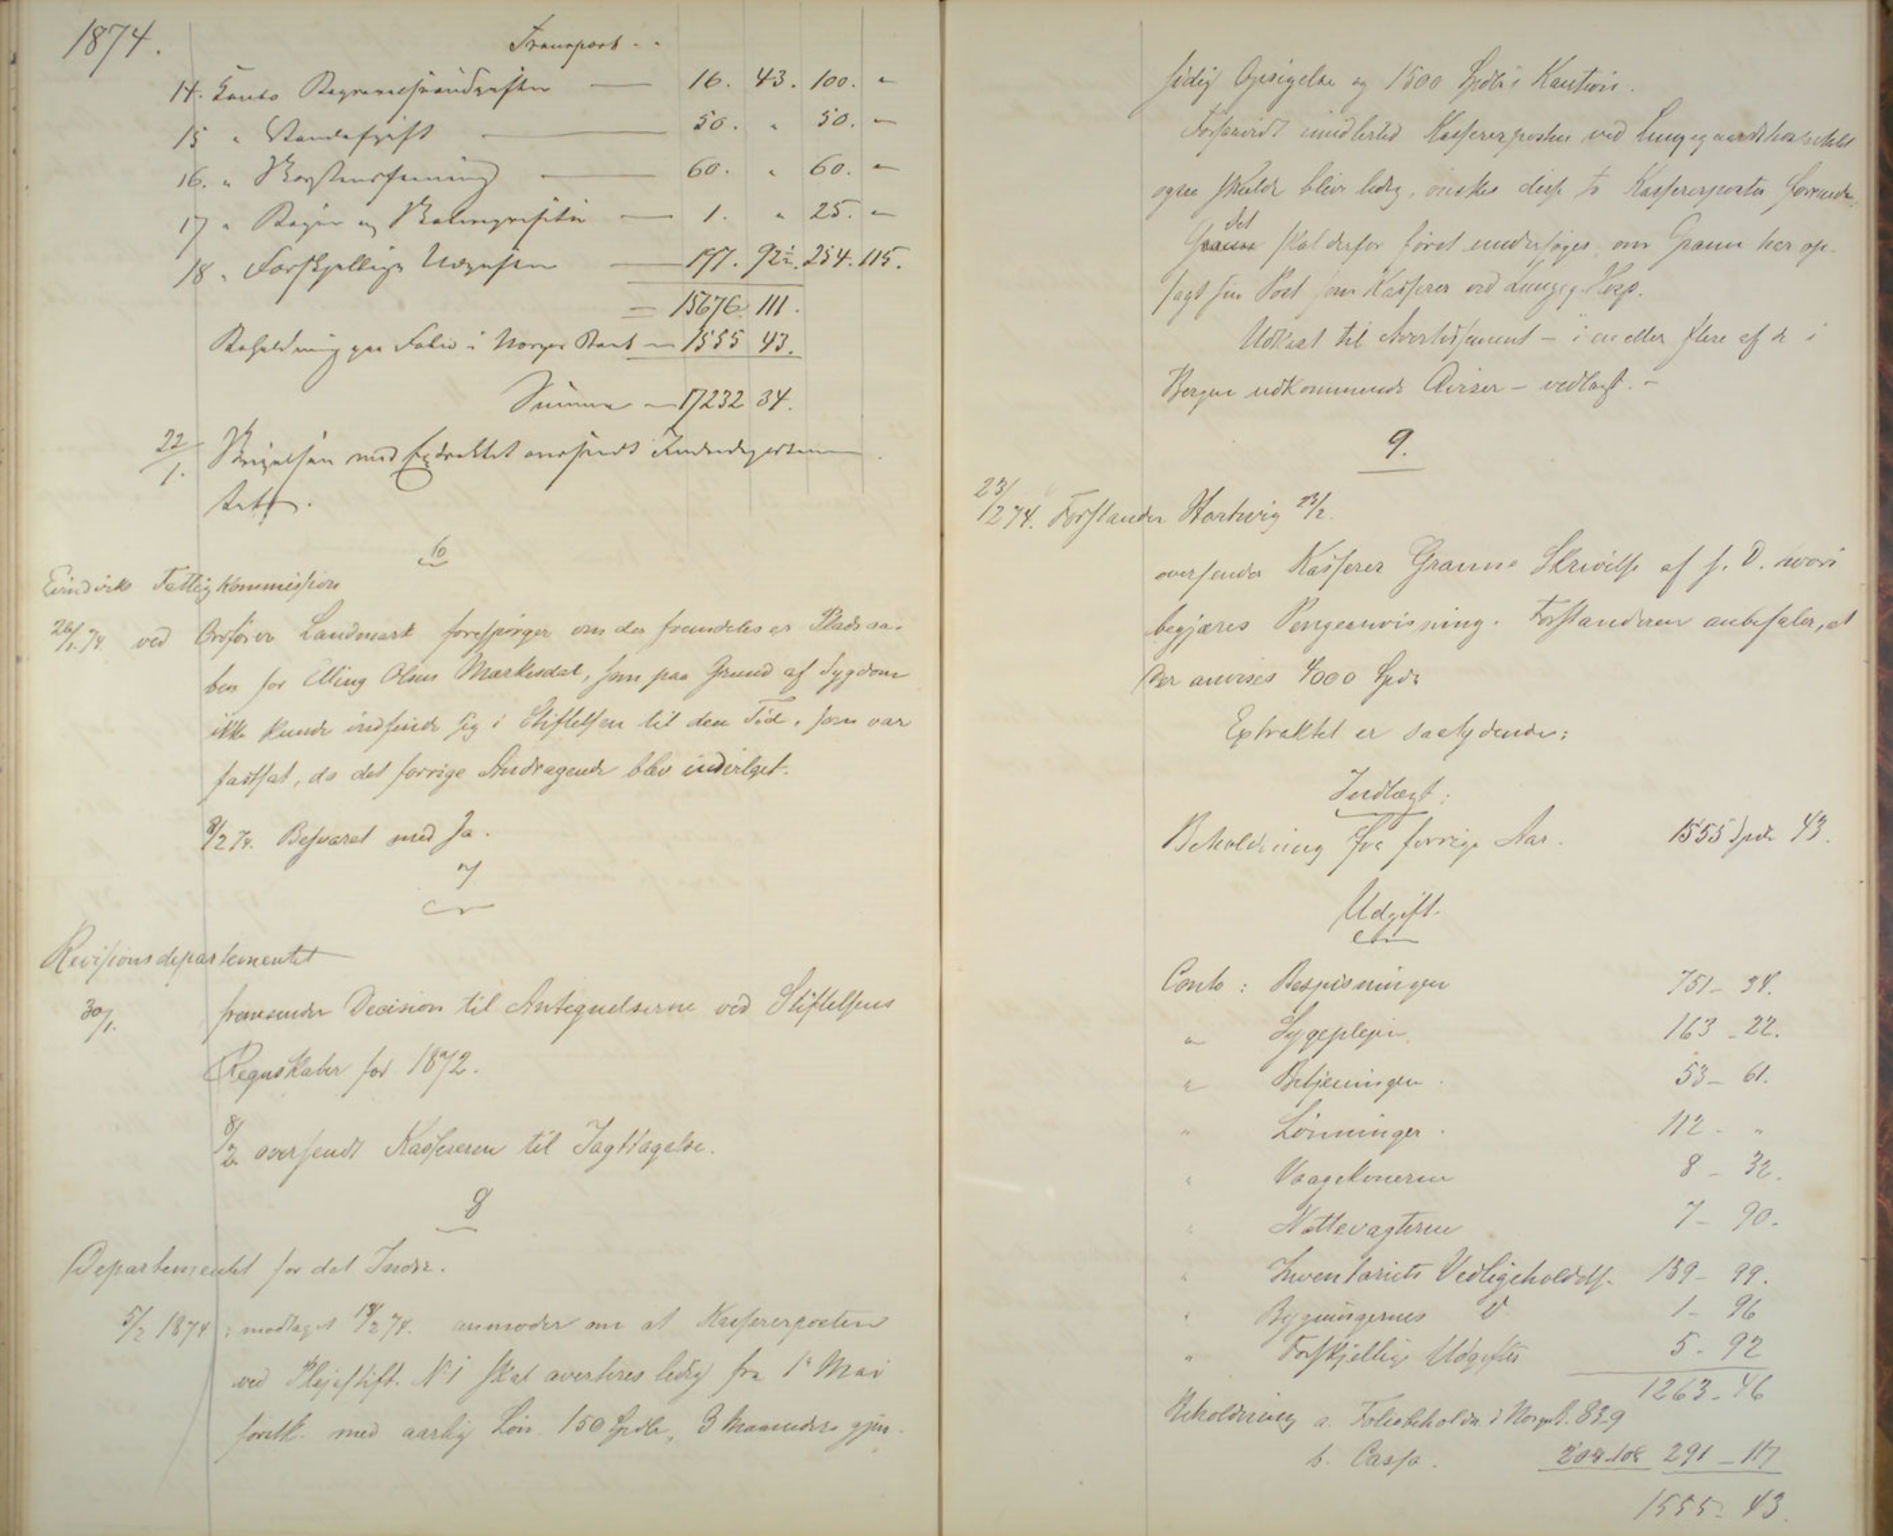 1874.
Transport - -
14. Conto Begravelsesudgifter — 16. 43. 100. "
15 " Vandafgift — 50. " 50. "
16. " Skorstensfeining — 60. " 60. "
17 " Bøger og — 1. " 25. "
18 " Forskjellige Udgifter — 197. 92½. 254. 115.
= 15676. 111.
Beholdning paa Folio i Norges Bank — 1555 43.
Summa — 17232 34.
22/1. med Extraktet oversendt Indredeparteme
tet.
6
Eivindviks Fattigkommission
26/1 74 ved Ordfører Landmark forespørger om der fremdeles er Plads aa-
ben for Elling Olsen Markesdal, som paa Grund af Sygdom
ikke kunde indfinde sig i Stiftelsen til den Tid, som var
fastsat, da det forrige Andragende blev indvilget.
8/2 74. Besvaret med Ja.
7
Revisionsdepartementet
30/1. fremsender Decision til Antegnelserne ved Stiftelsens
Regnskaber for 1872.
8/2 oversendt Kassereren til Iagttagelse.
8
Departementet for det Indre.
5/2 1874: modtaget 18/2 74. anmoder om at Kasererposten
ved Plejestift. No 1 skal averteres ledig fra 1ste Mai
førstk. med aarlig Løn 150 Spdlr, 3 Maaneders gjen-
sidig Opsigelse og 1500 Spdlrs Kaution.
Forsaavidt imidlertid Kassererposten ved Lungegaardshospitalet
ogsaa skulde blive ledig, ønskes disse to Kassererposter forenede.
Det skal derfor først undersøges, om Grann har op-
sagt sin Post som Kasserer ved Lungeg. Hosp.
Udkast til Avertissement – i en eller flere af de i
Bergen udkommende Aviser – vedlagt. –
9.
23/2 74. Forstander Hartwig 23/2.
oversender Kasserer Granns Skrivelse af s. D. hvori
begjæres Pengeanvisning. Forstanderen anbefaler, at
Der anvises 4000 Spdr
Extraktet er saalydende:
Indtægt:
Beholdning fra forrige Aar. 1555 Spdr 43.
Udgift.
Conto: Bespisningen 751 – 34.
" Sygeplejen 163 – 22.
" Betjeningen 53 – 61.
" Lønninger 112 – "
" Vaagekonerne 8 – 32.
" Nattevagterne 7 – 90.
" Inventariets Vedligeholdelse 159 – 99.
" Bygningernes D 1 – 96
" Forskjellige Udgifter 5 – 92
1263 – 46
Beholdning a. Foliobeholdn. i Norges B. 83.9
b. Cassa. 208.108 291 – 117
1555 – 43.